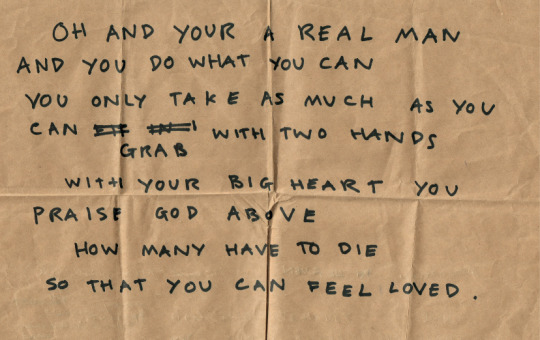 OH AND YOUR A REAL MAN
AND YOU DO WHAT YOU CAN
YOU ONLY TAKE AS MUCH AS YOU
CAN WITH TWO HANDS
GRAB
WITH YOUR BIG HEART YOU
PRAISE GOD ABOVE
HOW MANY HAVE TO DIE
SO THAT YOU CAN FEEL LOVED.